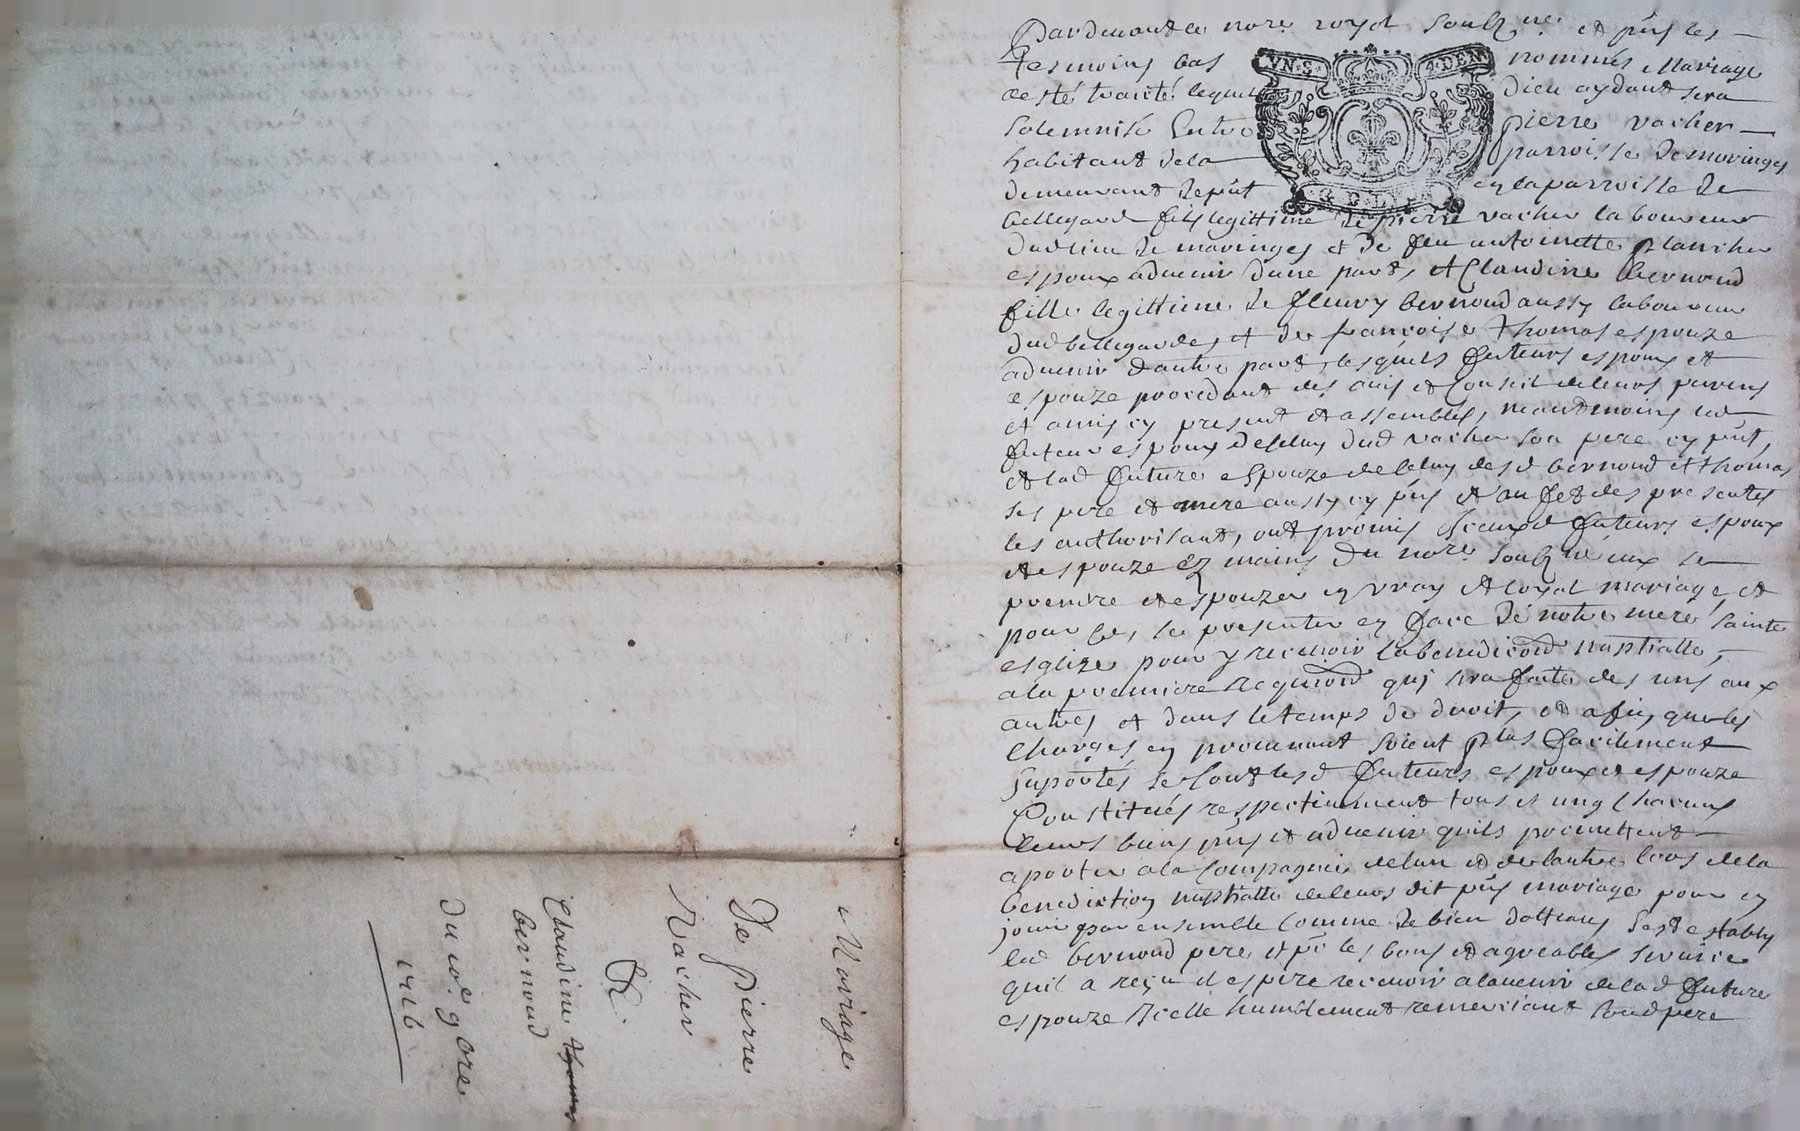 Mariage
De Pierre
Vacher
&
Claudine thomas
bernoud
Du 10e 9bre
1716
Pardevant le nore royal soubzné et pns les
tesmoins bas nommés Mariage
a esté traité lequel Dieu aydant sera
solemnisé Entre pierre vacher
habitant de la parroisse de maringes
demeurant de pnt en la parroisse de
bellegarde fils legittime de pierre vacher laboureur
dud lieu de maringes et de feu antoinette plancher
espoux advenir dune part, et Claudine bernoud
fille legittime de fleury bernoud aussy laboureur
dud bellegarde, et de francoise thomas espouze
advenir dautre part, lesquels futeurs espoux et
espouze procedant des avis et Conseil de leurs parens
et amis cy present et assemblés, meantmoins led
futeur espoux de celuy dud vacher son pere cy pnt,
et lad future espouze de celuy desd bernoud et thomas
ses pere et mere aussy cy pns et au fet des presentes
les authorisant, ont promis iceuxd futeurs espoux
et espouze ez mains du nore soubzné eux se
prendre et espouzer en vray et loyal mariage, et
pour ce, se presenter en face De notre mere sainte
esglize pour y recevoir la benedicõn nuptialle,
a la premiere requiõn qui sera faite des uns aux
autres et dans le temps de droit, et afin que les
Charges en provenant soient plus facilement
suportés se sont lesd futeurs espoux et espouze
Constitués respectivement tous et ung Chacuns
leurs biens pns et advenir quils promettent
aporter a la Compagnie de lun et de lautre lors de la
benediction nuptialle de leurs dit pns mariage pour en
jouir par ensemble Comme de bien dottaux sest establi
led bernoud pere, et pr les bons et agreables service
quil a reçu et espere recevoir a lavenir de lad future
espouze Icelle humblement remerciant sond pere
VN·S· 4·DEN